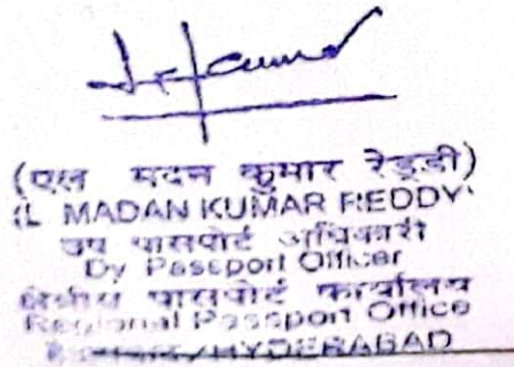 (एल मदन कुमार रेड्डी)
(L MADAN KUMAR REDDY)
उप पासपोर्ट अधिकारी
Dy Passport Officer
क्षेत्रीय पासपोर्ट कार्यालय
Regional Passport Office
/HYDERABAD